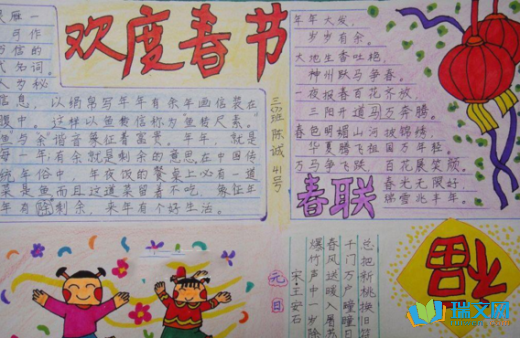 欢度春节
雁一
可作
万信的
知词。
人岁秘
信息，以绢帛写年年有余年画信装在
腹中。这样以鱼传信称为"鱼传尺素"。
与余谐音象征着富贵。年年，就是
每一年；有余就是剩余的意思，在中国传
年俗中，年夜饭的餐桌上必有一道
菜是鱼而且这道菜留着不吃，象征年
年有剩余，来年有个好生活。
三班 陈诚 41号
年年大发，
岁岁有余。
大地生香吐艳，
神州跃马争春。
一夜报春百花齐放，
三阳开道马万奔腾。
春色明媚山河披锦绣，
华夏腾飞祖国万年轻。
万马争飞跃，百花展笑颜。
春光无限好
瑞雪兆丰年。
春联
元日
宋·王安石
爆竹声中一岁除
春风送暖
千门万户曈曈日
总把新桃换旧符
福
瑞文网